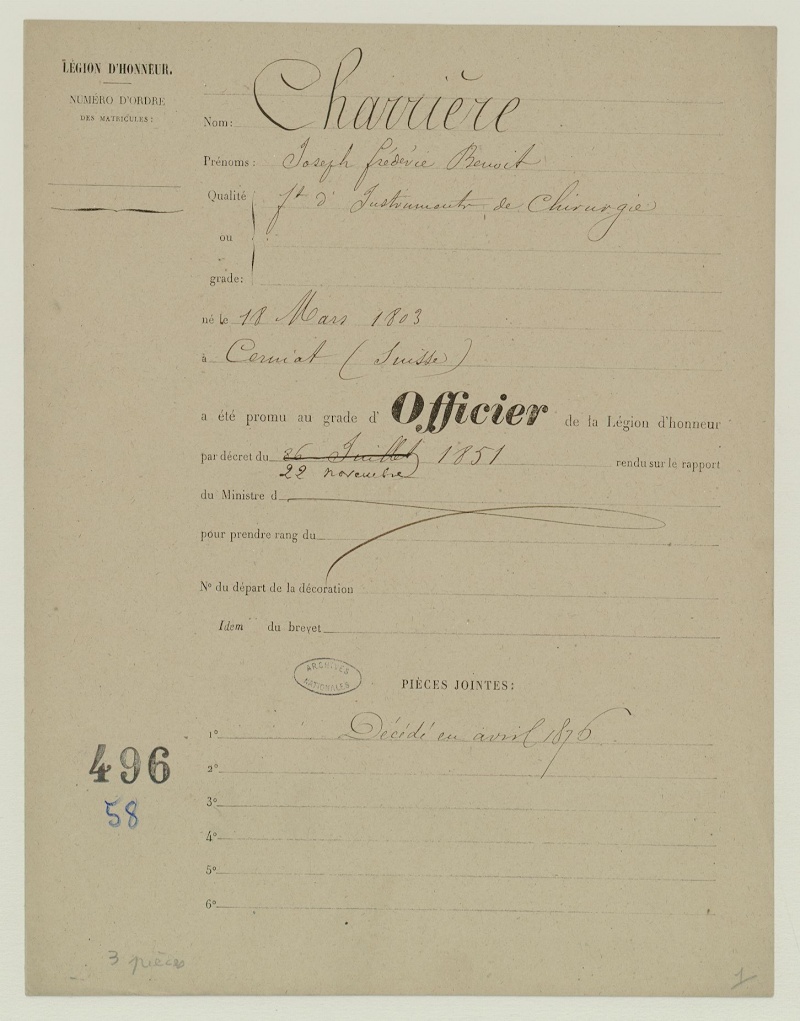 LÉGION D'HONNEUR.
NUMÉRO D'ORDRE
DES MATRICULES:
Nom: Charrière
Prénoms: Joseph frédéric Benoit
Qualité ft d' Instruments de Chirurgie
ou
grade:
né le 18 Mars 1803
à Cerniat (Suisse)
a été promu au grade d' Officier de la Légion d'honneur
par décret du 26 Juillet 1851 rendu sur le rapport
22 novembre
du Ministre d
pour prendre rang du
No du départ de la décoration
Idem du brevet
ARCHIVES NATIONALES
PIÈCES JOINTES:
1o Décédé en avril 1876
2o
3o
4o
5o
6o
496
58
3 pièces
1